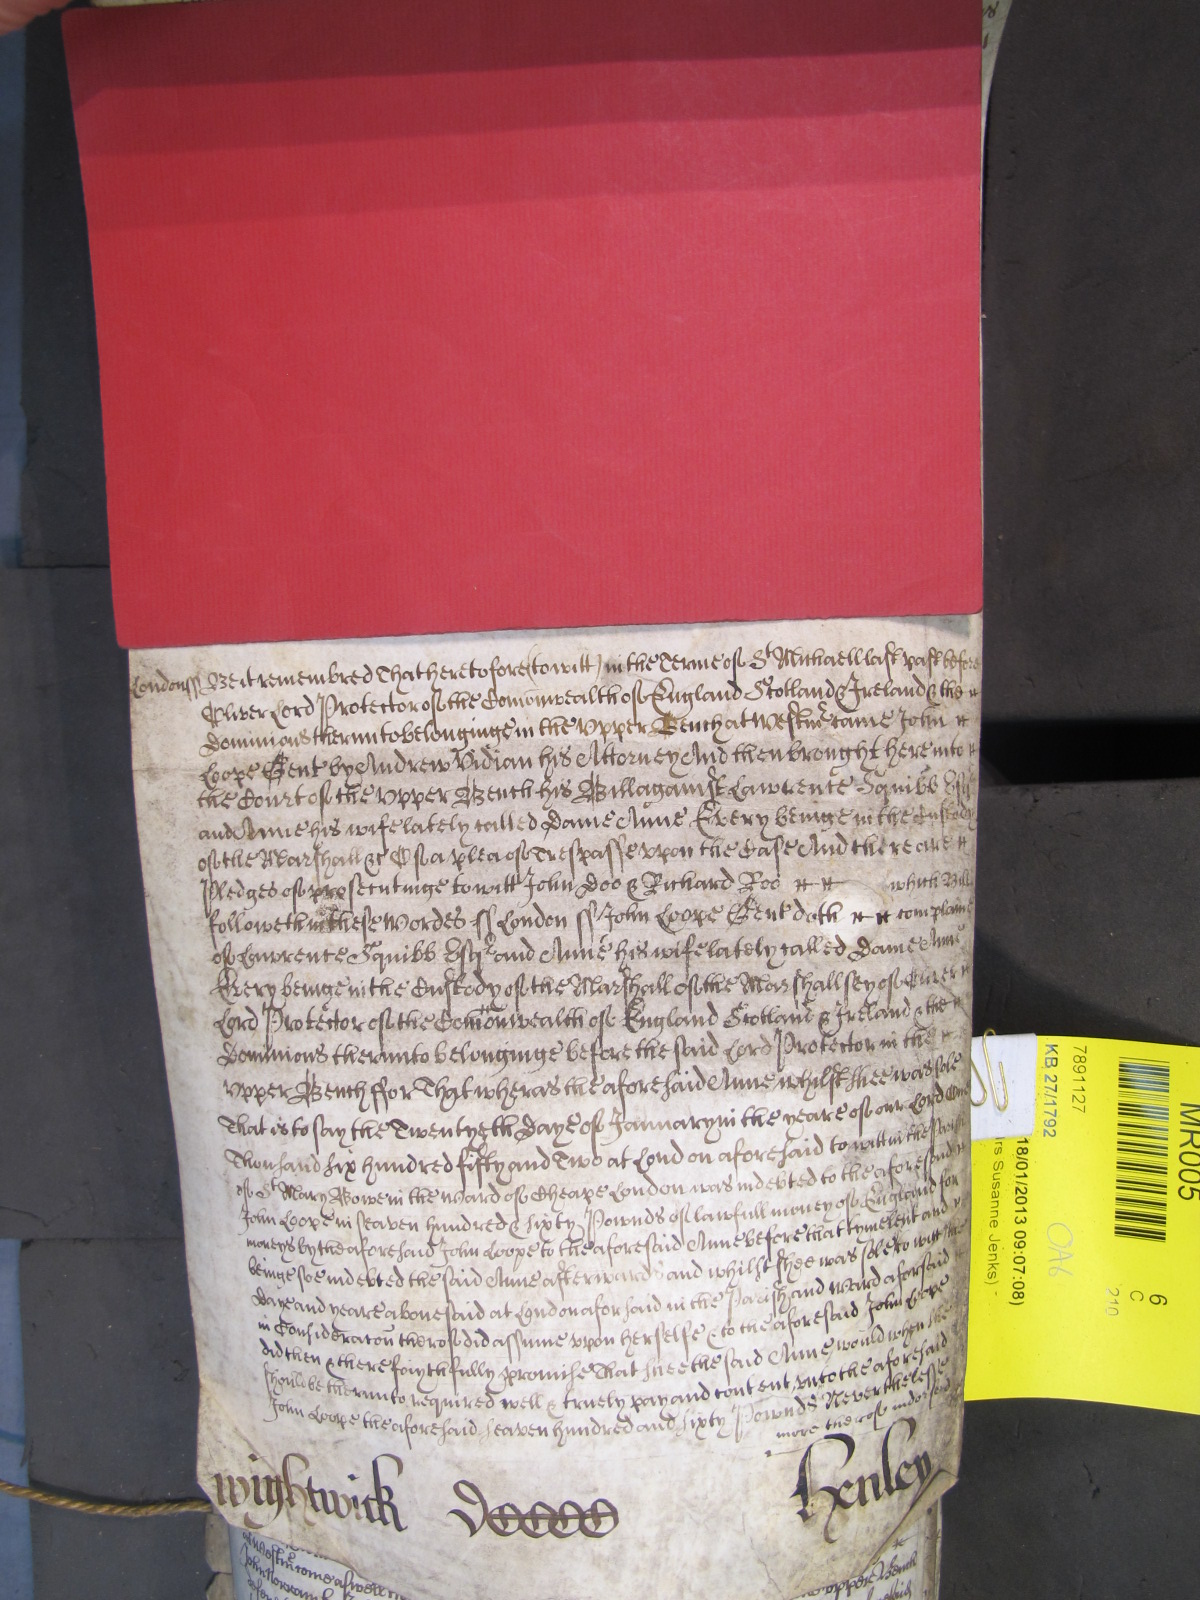 London ss Be it remembred That heretofore (to witt) in the Terme of St Michaell last past before
Oliver Lord Protector of the Comonwealth of England Scotland & Ireland & the
Dominions therunto belonginge in the Upper Bench at Westmr came John
Loope Gent by Andrew Vidian his Attorney And then brought here into
the Court of the Upper Bench his Bill against Lawrence Squibb Esqr
and Anne his wife lately called Dame Anne Every beinge in the Custody
of the Marshall &c Of a plea of Trespasse upon the Case And there are
Pledges of prosecutinge to witt John Doo & Richard Roo which Bill
followeth in these Wordes ss London ss John Loope Gent doth complaine
of Lawrence Squibb Esqr and Anne his wife lately called Dame Anne
Every beinge in the Custody of the Marshall of the Marshallsey of Oliver
Lord Protector of the Comonwealth of England Scotland & Ireland & the
Dominions therunto belonginge before the said Lord Protector in the
Upper Bench ffor That wheras the aforesaid Anne whilst shee was sole
That is to say the Twentyeth Daye of January in the yeare of our Lord One
Thousand six hundred fifty and Two at London aforesaid to witt in the Parish
of St Mary Bowe in the Ward of Cheape London was indebted to the aforesaid
John Loope in seaven hundred & sixty Pownds of lawfull money of England for
moneys by the aforesaid John Loope to the aforesaid Anne before that tyme lent and
beinge soe indebted the said Anne afterwards and whilst shee was sole to witt the
Daye and yeare abovesaid at London aforsaid in the Parish and Ward aforsaid
in Consideracon therof did assume upon herselfe & to the aforesaid John Loope
did then & there faythfully promise That shee the said Anne would when she
should be therunto required well & truely pay and content unto the aforesaid
John Loope the aforesaid seaven hundred and sixty Pownds Neverthelesse
more therof indorsed
Wightwick Henley
at Westmr come aswell
John
Upper Bench
MR005
7891127
KB 27/1792
18/01/2013 09:07:08)
rs Susanne Jenks) -
OA6
6
C
210